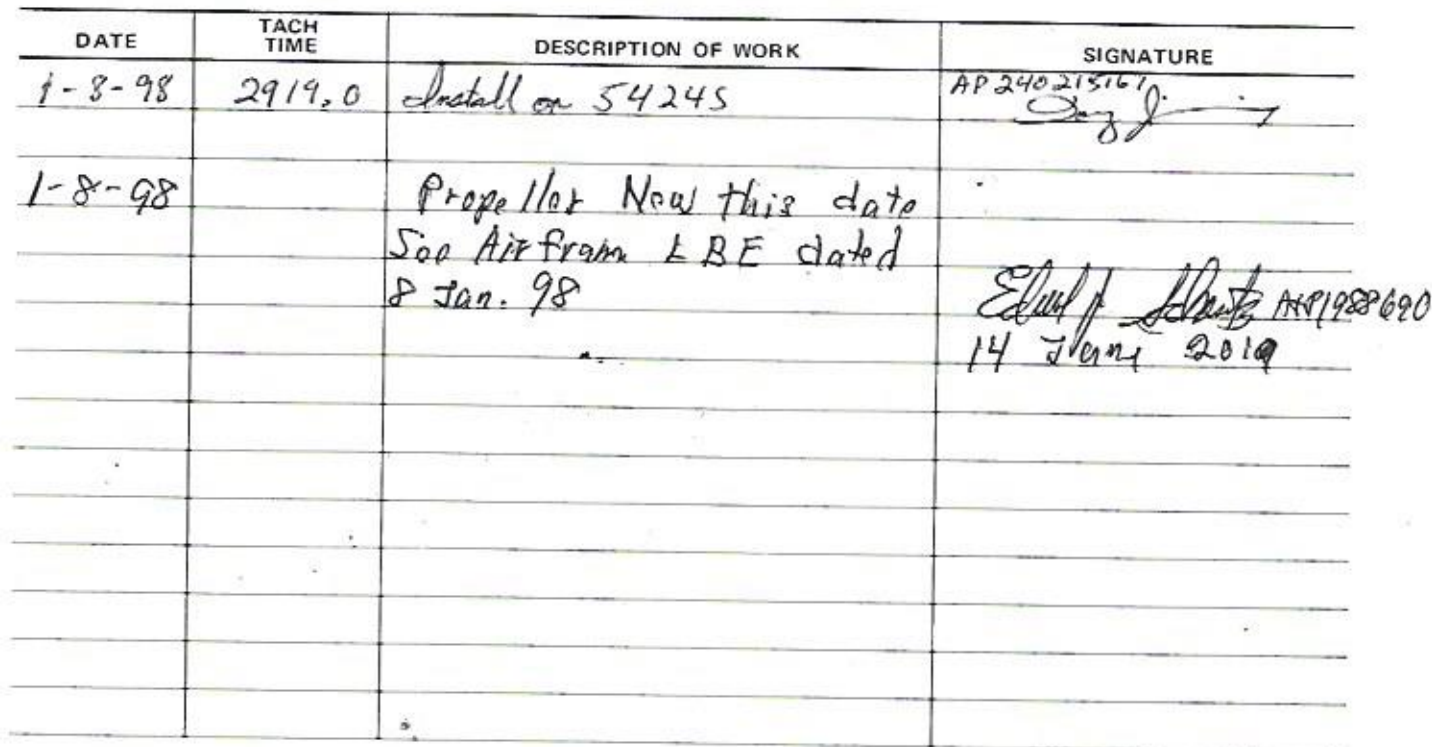 DATE TACH TIME DESCRIPTION OF WORK SIGNATURE
1-8-98 2919.0 Install on 5424S AP 240215161
1-8-98 Propeller New this date
See Airframe LBE dated
8 Jan. 98
A&P1988690
14 2019